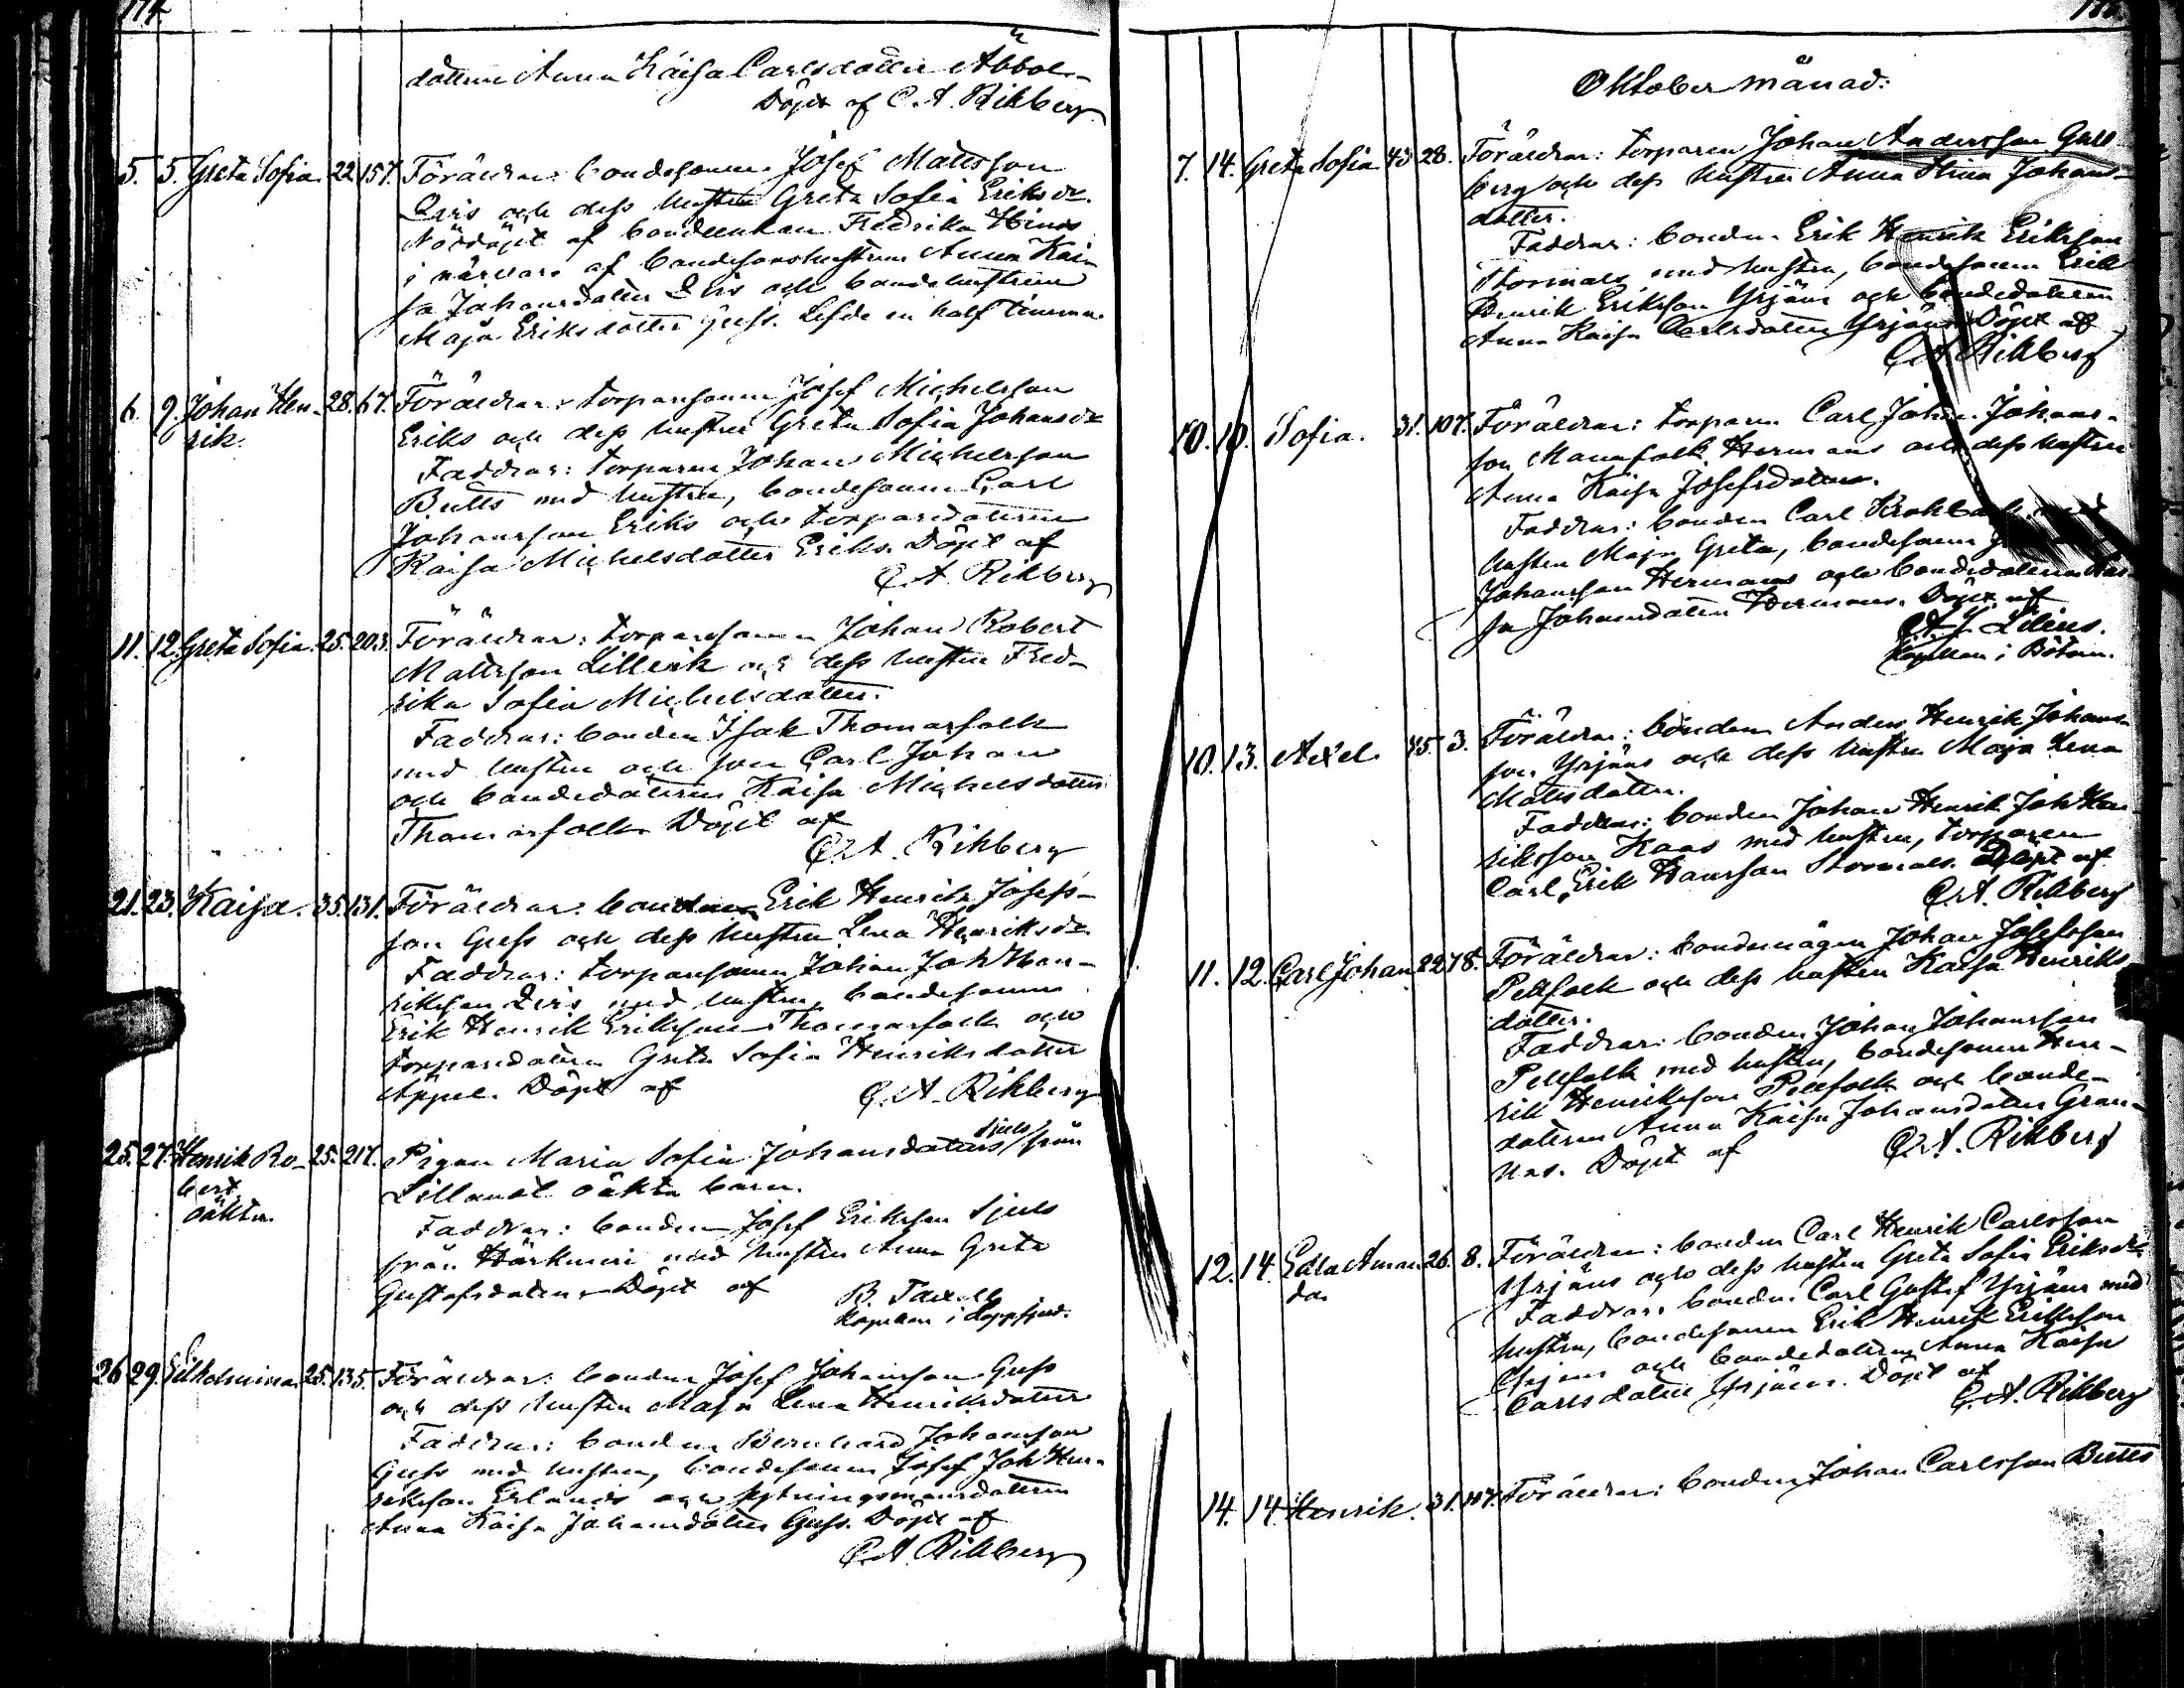 174
dottren Anna Kaisa Carlsdotter Abbo
Döpt af C. A. Rikberg
5. 5. Greta Sofia. 22. 157. Föräldrar: bondesonen Josef Mattsson
och dess hustru Greta Sofia Eriksdr.
Nöddöpt af bondeenkan Fredrika Hinds
i närvaro af bondesonshustrun Anna Kai-
sa Johansdotter och bondehustrun
Maja Eriksdotter Guss. Lefde en half timma.
6. 9. Johan Hen- 28. 67. Föräldrar: torparesonen Josef Michelsson
rik. Eriks och dess hustru Greta Sofia Johansdr
Faddrar: torparen Johan Michelsson
Butts med hustru, bondesonen Carl
Johansson Eriks och torparedottren
Kaisa Michelsdotter Eriks. Döpt af
C. A. Rikberg
11. 12. Greta Sofia. 25. 203. Föräldrar: torparesonen Johan Robert
Mattsson Lillerik och dess hustru Fred-
rika Sofia Michelsdotter.
Faddrar: bonden Isak Thomasfolk
med hustru och son Carl Johan
och bondedottren Kaisa Michelsdotter
Thomasfolk. Döpt af
C. A. Rikberg
21. 23. Kaisa. 35. 131. Föräldrar: bonden Erik Henrik Josefs-
son Guss och dess hustru Lena Henriksdr
Faddrar: torparesonen Johan Joh Hen-
riksson med hustru, bondesonen
Erik Henrik Eriksson Thomasfolk och
torparedottren Greta Sofia Henriksdotter
Äppel. Döpt af C. A. Rikberg
Sjuls
25. 27. Henrik Ro- 25. 217. Pigan Maria Sofia Johansdotters från
bert Lillanät oäkta barn.
oäkta.
Faddrar: bonden Josef Eriksson Sjuls
från Härkmeri med hustru Anna Greta
Gustafsdotter. Döpt af B. Taxell
Kapellan i Lappfjerd.
26. 29. Vilhelmina. 25. 135. Föräldrar: bonden Josef Johansson Guss
och dess hustru Maja Lena Henriksdotter
Faddrar: bonden Bernhard Johansson
Guss med hustru, bondesonen Josef Joh Hen-
riksson Erlands och
Anna Kaisa Johansdotter Guss. Döpt af
C. A. Rikberg
Oktober månad:
7. 14. Greta Sofia 43 28. Föräldrar: torparen Johan Andersson Gull-
berg och dess hustru Anna Stina Johans-
dotter.
Faddrar: bonden Erik Henrik Eriksson
Stormals med hustru, bondesonen Erik
Henrik Eriksson Yrjäns och bondedottren
Anna Kaisa Carlsdotter Yrjäns. Döpt af
C. A. Rikberg
10. 10. Sofia. 31. 107. Föräldrar: torparen Carl Johan Johans-
son Mannfolk Hermans och dess hustru
Anna Kaisa Josefsdotter.
Faddrar: bonden Carl med
hustru Maja Greta, bondesonen
Johansson Hermans och bondedottren Kai-
sa Johansdotter Hermans. Döpt af
Lilius.
Kapellan i Bötom.
10. 13. Axel. 45. 3. Föräldrar: bonden Anders Henrik Johans-
son Yrjäns och dess hustru Maja Lena
Mattsdotter.
Faddrar: bonden Johan Henrik Joh Hen-
riksson Kaas med hustru, torparen
Carl Erik Hansson Stormals. Döpt af
C. A. Rikberg
11. 12. Carl Johan. 22. 78. Föräldrar: bondemågen Johan Josefsson
Pellfolk och dess hustru Kaisa Henriks-
dotter.
Faddrar: bonden Johan Johansson
Pellfolk med hustru, bondesonen Hen-
rik Henriksson Pellfolk och bonde-
dottren Anna Kaisa Johansdotter Gran-
nas. Döpt af C. A. Rikberg
12. 14. Edla Aman- 26. 8. Föräldrar: bonden Carl Henrik Carlsson
da. Yrjäns och dess hustru Greta Sofia Eriksdr
Faddrar: bonden Carl Gustaf Yrjäns med
hustru, bondesonen Erik Henrik Eriksson
Yrjäns och bondedottren Anna Kaisa
Carlsdotter Yrjäns. Döpt af
C. A. Rikberg
14. 14. Henrik. 31. Föräldrar: bonden Johan Carlsson Butts